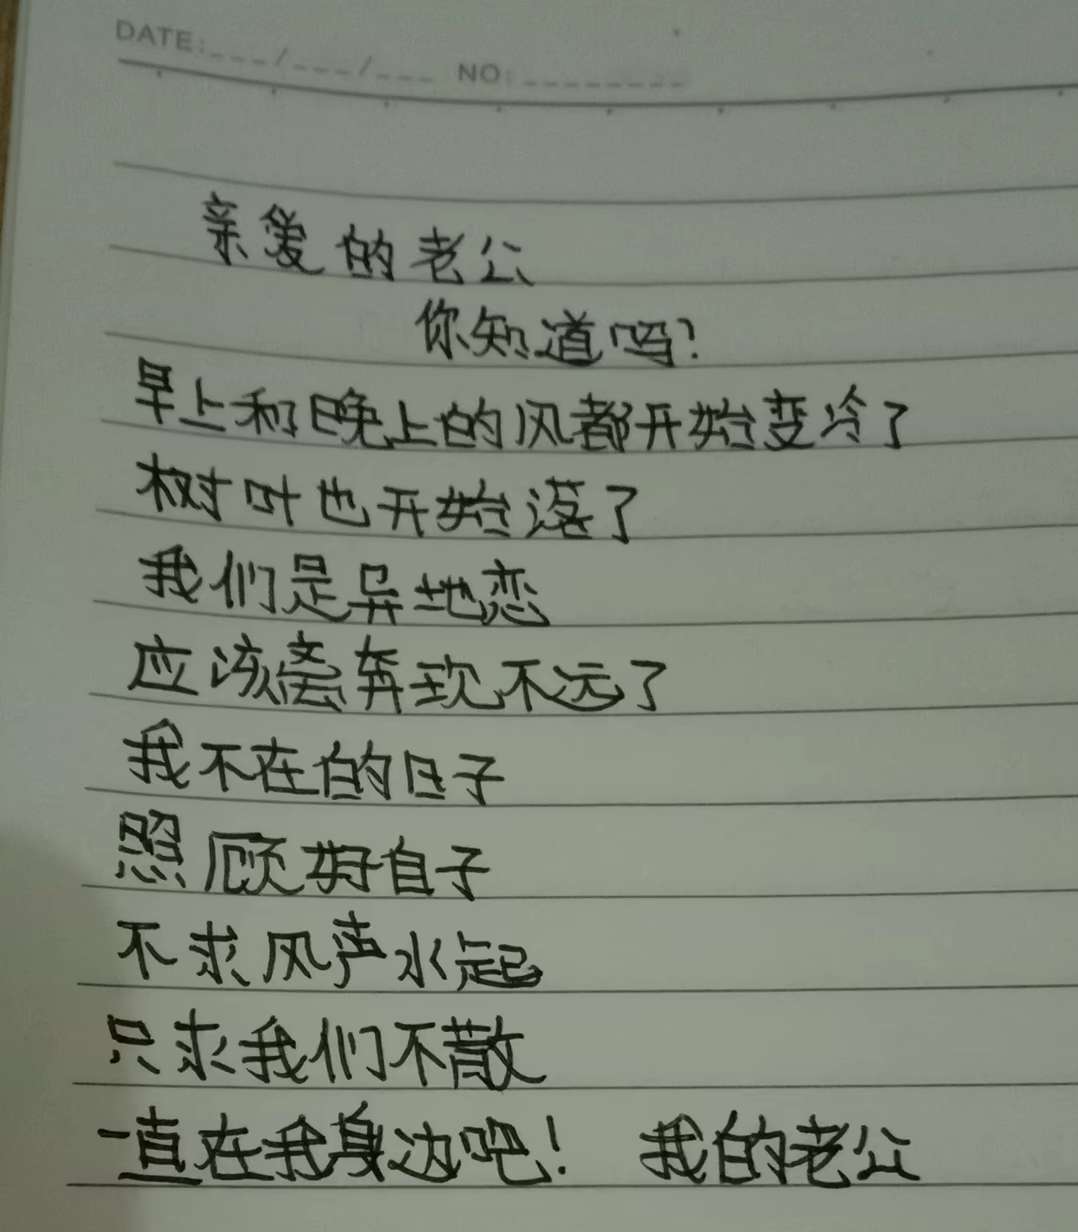 DATE:___/___/___ NO:________
亲爱的老公
你知道吗?
早上和晚上的风都开始变冷了
树叶也开始落了
我们是异地恋
应该离奔现不远了
我不在的日子
照顾好自子
不求风声水起
只求我们不散
一直在我身边吧! 我的老公